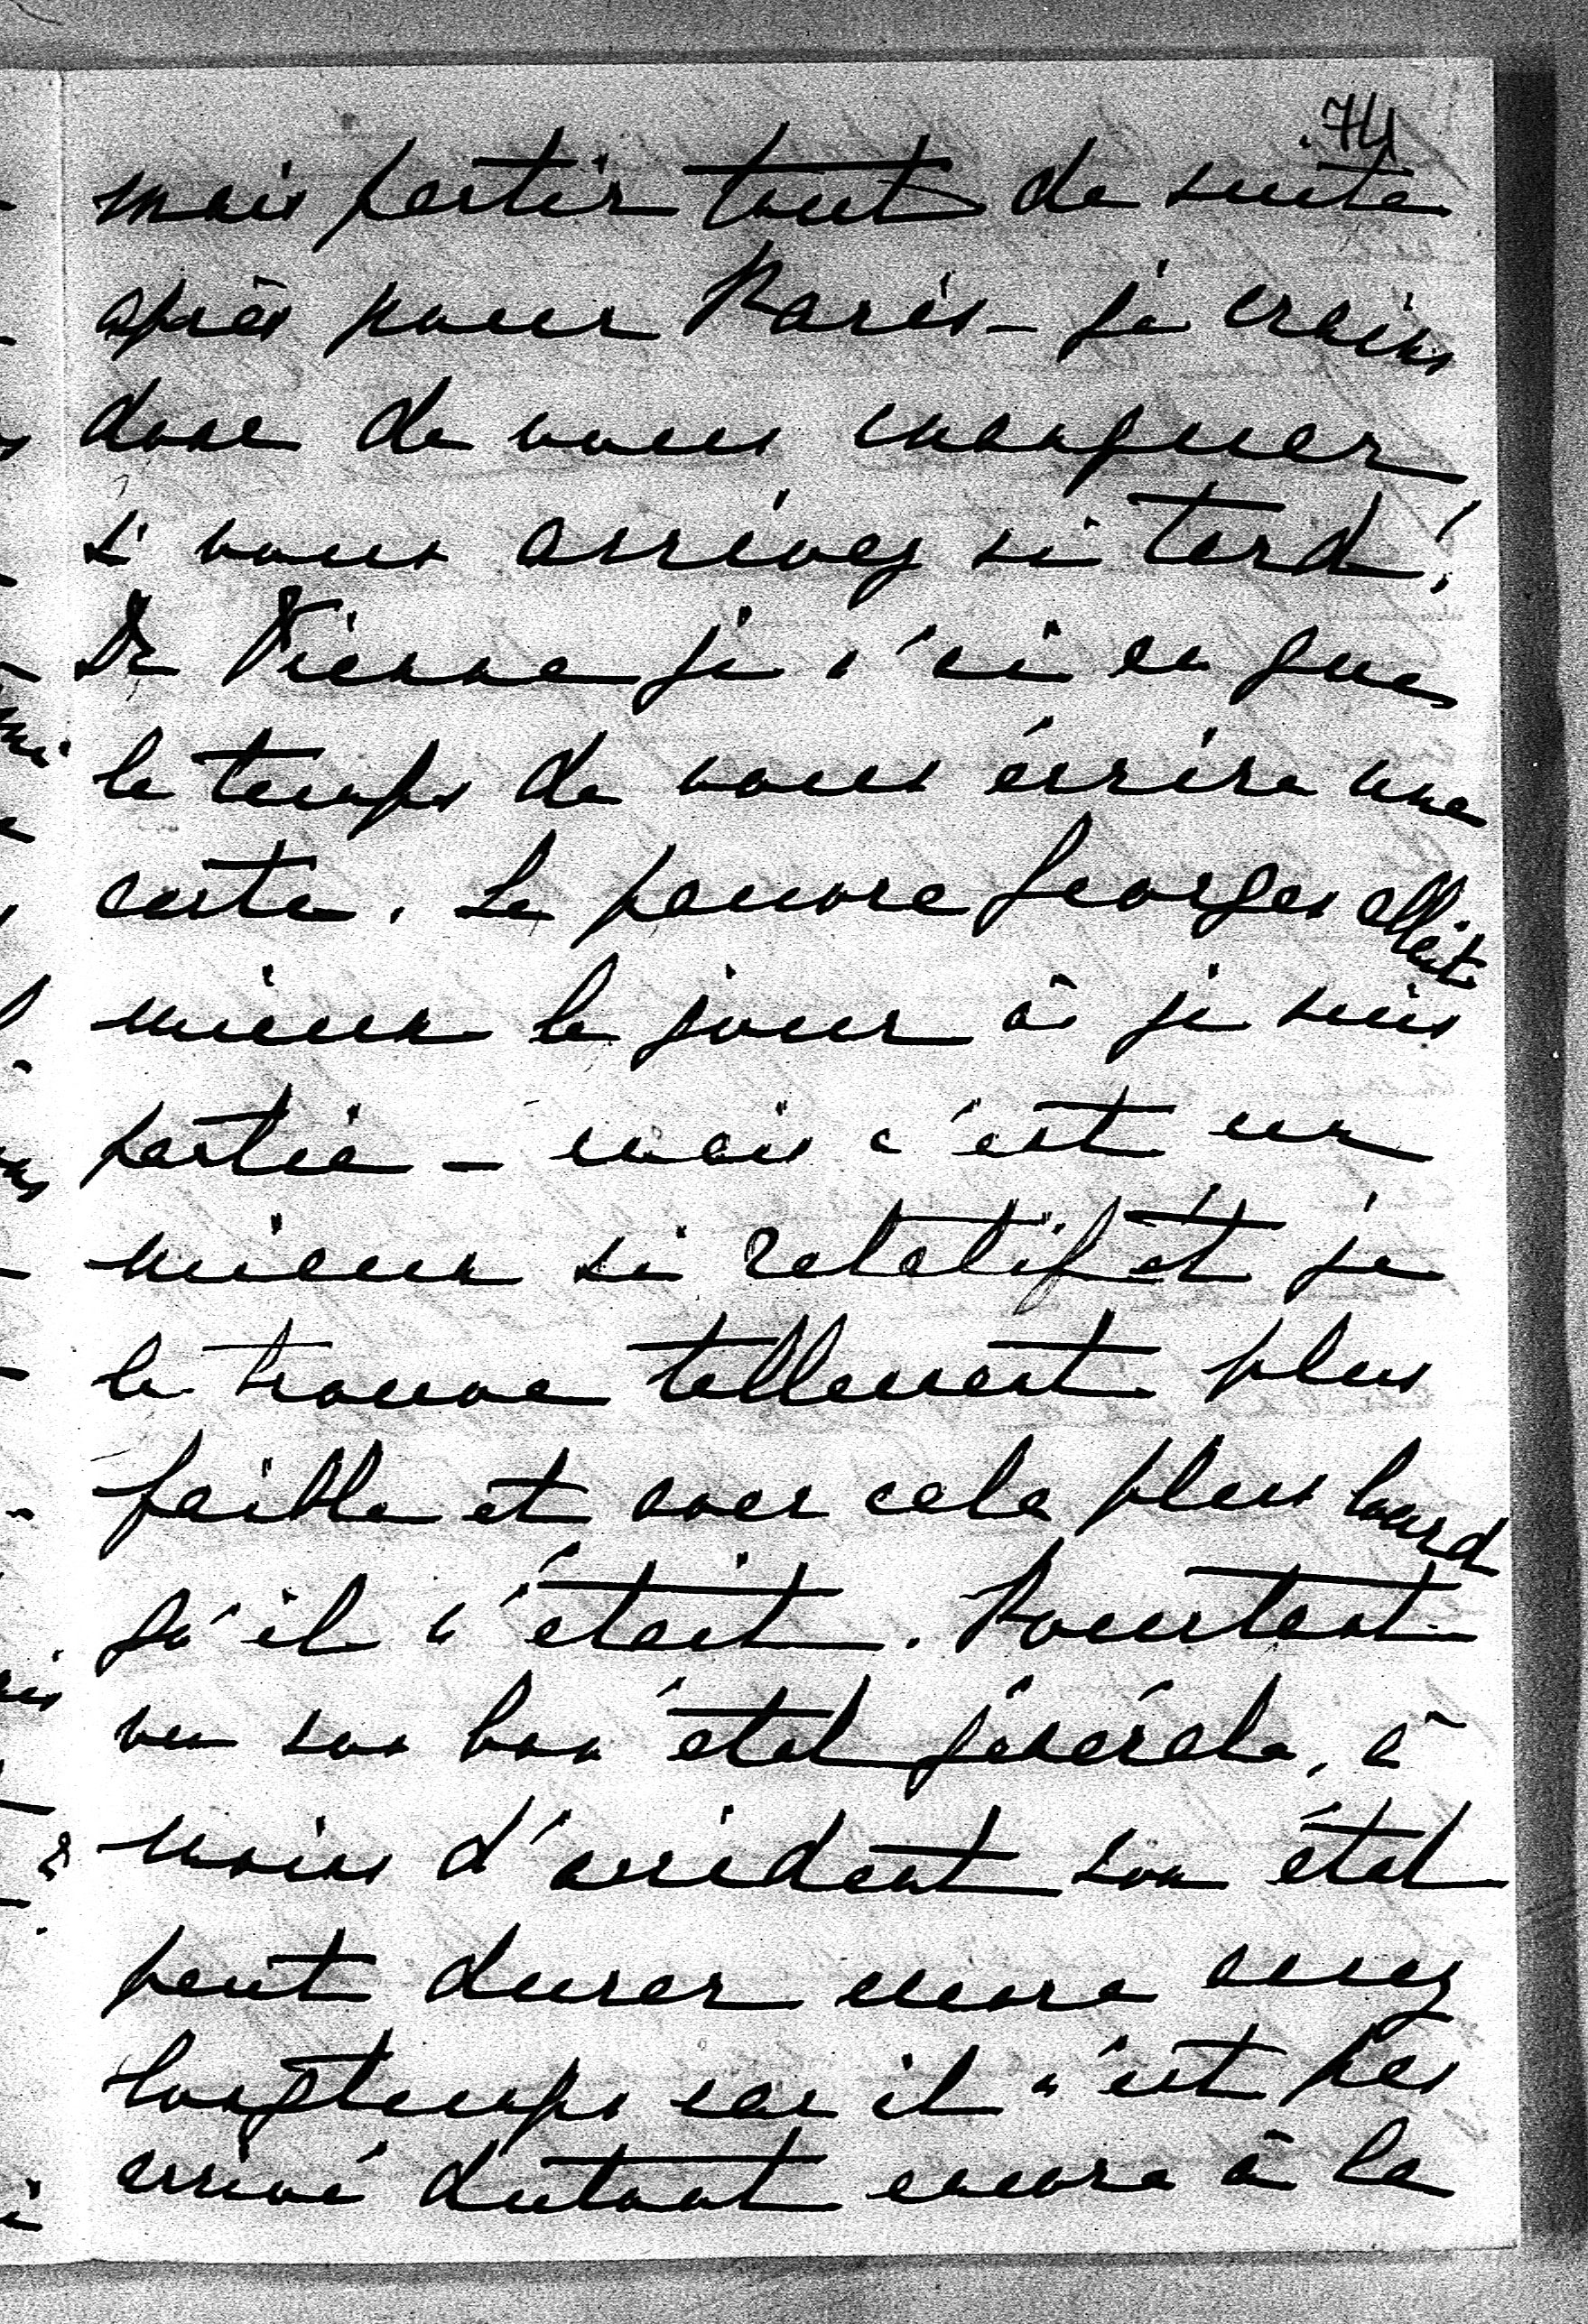 74
mais partir tout de suite
après pour Paris - je crains
donc de vous manquer
si vous arrivez si tard!
De Vienne je n'ai eu que
le temps de vous écrire une
carte. Le pauvre Georges allait
mieux le jour où je suis
partie - mais c'est un
mieux si relatif et je
le trouve tellement plus
faible et avec cela plus lourd
qu'il n'était. Pourtant
vu son bon état générale, à
moins d'accident son état
peut durer encore assez
longtemps car il n'est pas
arrivé dutout encore à la